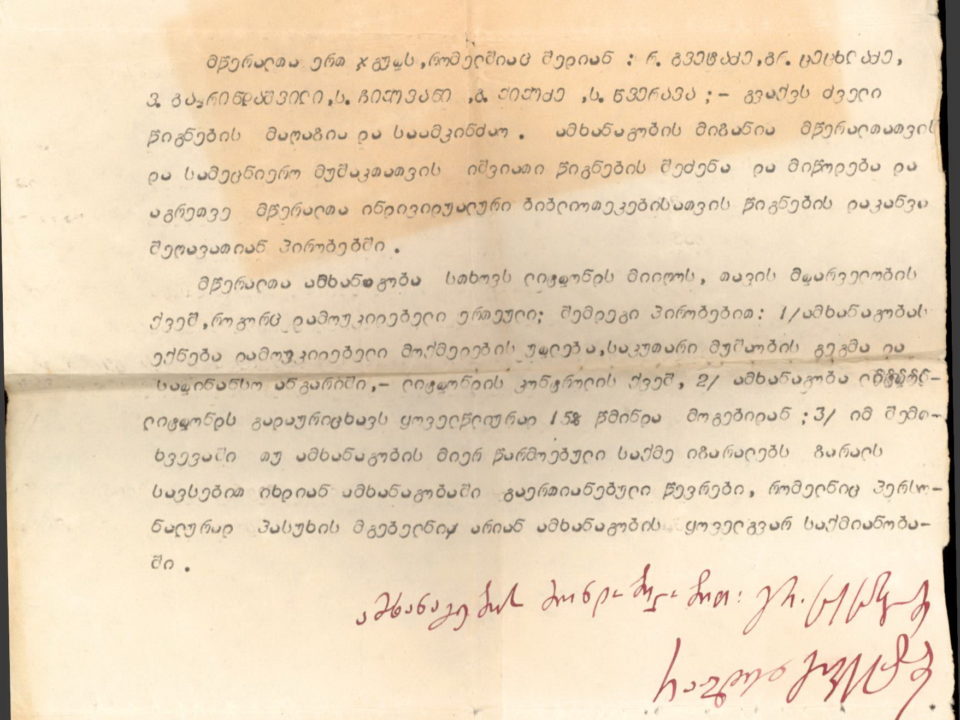 მწერალთა ერთ ჯგუფს,რომელშიაც შედიან : რ. გვეტაძე,გრ. ცეცხლაძე,
ვ. გაფრინდაშვილი,ს. ჩიქოვანი ,გ. ქიქოძე ,ს. წვერავა ; – გვაქვს ძველი
წიგნების მაღაზია და საამკინძაო . ამხანაგობის მიზანია მწერალთათვის
და სამეცნიერო მუშაკთათვის იშვიათი წიგნების შეძენა და მიწოდება და
აგრეთვე მწერალთა ინდივიდუალური ბიბლიოთეკებისათვის წიგნების დაკაზმვა
შეღავათიან პირობებში .
მწერალთა ამხანაგობა სთხოვს ლიტფონდს მიიღოს, თავის მფარველობის
ქვეშ,როგორც დამოუკიდებელი ერთეული; შემდეგი პირობებით: 1/ამხანაგობას
ექნება დამოუკიდებელი მოქმედების უფლება,საკუთარი მუშაობის გეგმა და
საფინანსო ანგარიში,– ლიტფონდის კონტროლის ქვეშ, 2/ ამხანაგობა
ლიტფონდს გადაურიცხავს ყოველწლიურად 15% წმინდა მოგებიდან ; 3/ იმ შემთ–
ხვევაში თუ ამხანაგობის მიერ წარმოებული საქმე იზარალებს ზარალს
სავსებით იხდიან ამხანაგობაში გაერთიანებული წევრები, რომელნიც პერსო–
ნალურად პასუხის მგებელნი არიან ამხანაგობის ყოველგვარ საქმიანობა–
ში .
ამხანაგობის გრ.